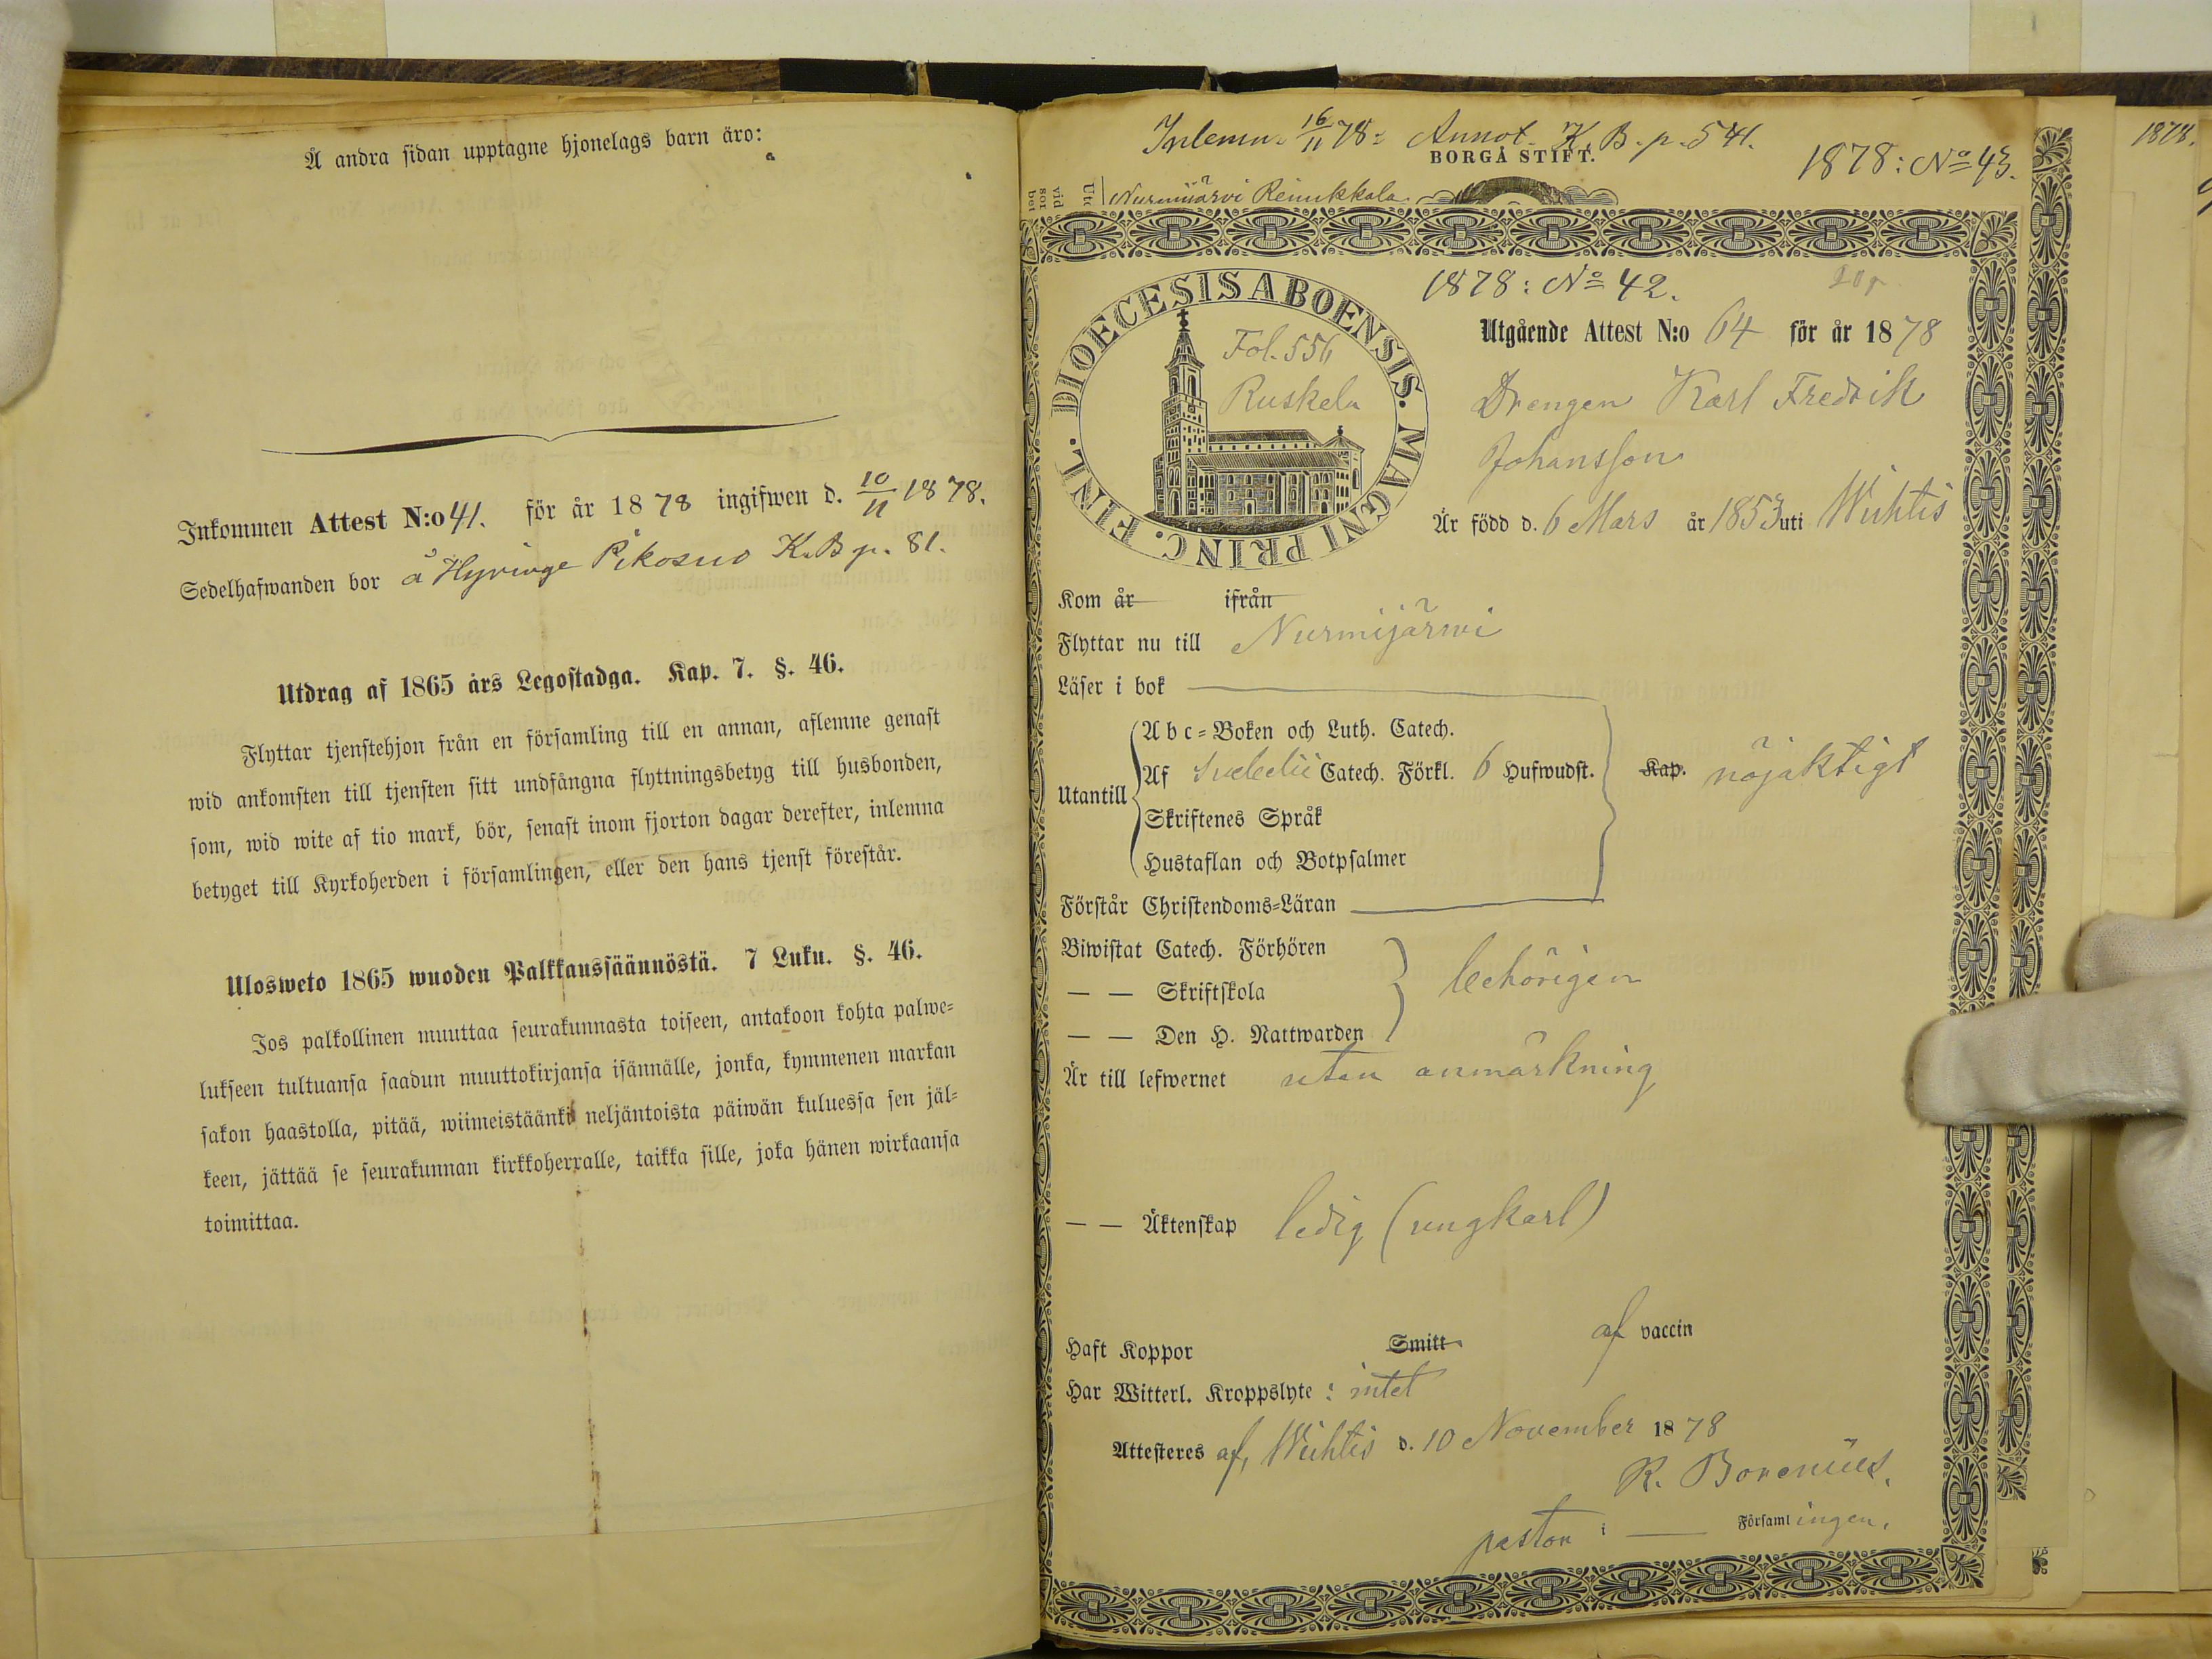 Å andra sidan upptagne hjonelags barn äro:
Inkommen Attest N:o 41. för år 1878 ingifwen d. 10/11 1878.
Sedelhafwanden bor å Hyvinge K.B p. 81.
Utdrag af 1865 års Legostadga. Kap. 7. §. 46.
Flyttar tjenstehjon från en församling till en annan, aflemne genast
wid ankomsten till tjensten sitt undfångna flyttningsbetyg till husbonden,
som, wid wite af tio mark, bör, senast inom fjorton dagar derefter, inlemna
betyget till Kyrkoherden i församlingen, eller den hans tjenst förestår.
Ulosweto 1865 wuoden Palkkaussäännöstä. 7 Luku. §. 46.
Jos palkollinen muuttaa seurakunnasta toiseen, antakoon kohta palwe-
lukseen tultuansa saadun muuttokirjansa isännälle, jonka, kymmenen markan
sakon haastolla, pitää, wiimeistäänki neljäntoista päiwän kuluessa sen jäl-
keen, jättää se seurakunnan kirkkoherralle, taikka sille, joka hänen wirkaansa
toimittaa.
Inlemn. 16/11 78: Annot. K. B. p. 541.
BORGÅ STIFT.
1878: No 43.
Nurmijärvi
1878: No 42.
DIOECESIS ABOENSIS. MAGNI PRINC. FINL.
Fol. 556
Ruskela
Utgående Attest N:o 64 för år 1878
Drengen Karl Fredrik
Johansson
Är född d. 6 Mars år 1853 uti Wichtis
Kom år ifrån
Flyttar nu till Nurmijärwi
Läser i bok
Abc-Boken och Luth. Catech.
Utantill
Af Svebelii Catech. Förkl. 6 Hufwudst. Kap. nöjaktigt
Skriftenes Språk
Hustaflan och Botpsalmer
Förstår Christendoms-Läran
Biwistat Catech. Förhören
— — Skriftskola behörigen
— — Den H. Nattwarden
Är till lefwernet utan anmärkning
— — Äktenskap ledig (ungkarl)
Haft Koppor Smitt af vaccin
Har Witterl. Kroppslyte: intet
Attesteres af, Wichtis d. 10 November 1878
R. Borenius.
pastor i Församlingen.
1878.